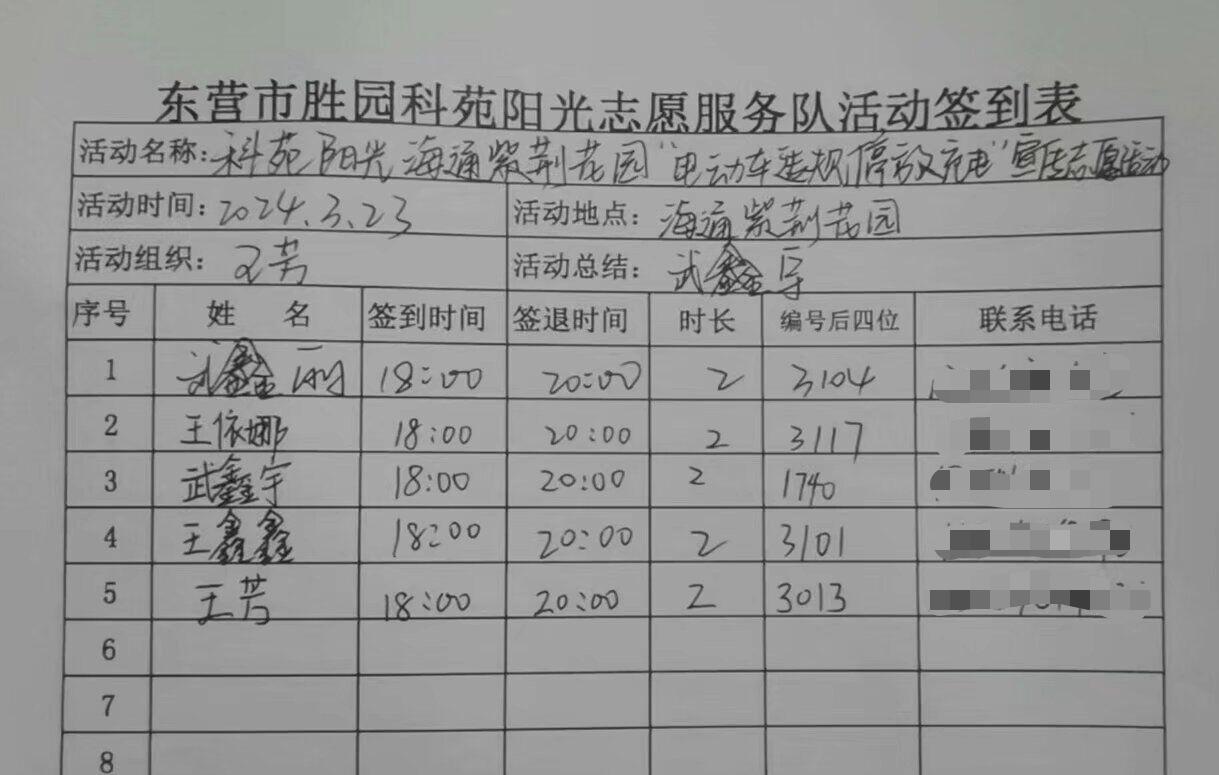 东营市胜园科苑阳光志愿服务队活动签到表
活动名称:科苑阳光海通紫荆花园"电动车违规停放充电"宣传志愿活动
活动时间:2024.3.23 活动地点:海通紫荆花园
活动组织:王芳 活动总结:武鑫宇
序号 姓 名 签到时间 签退时间 时长 编号后四位 联系电话
1 武鑫丽 18:00 20:00 2 3104
2 王依娜 18:00 20:00 2 3117
3 武鑫宇 18:00 20:00 2 1740
4 王鑫鑫 18:00 20:00 2 3101
5 王芳 18:00 20:00 2 3013
6
7
8